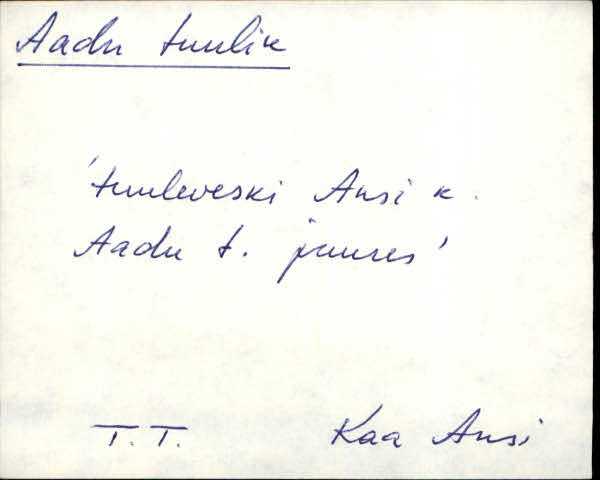 Aadu tuulik
'tuuleveski Ansi k.
Aadu t. juures'
T. T. Kaa Ansi